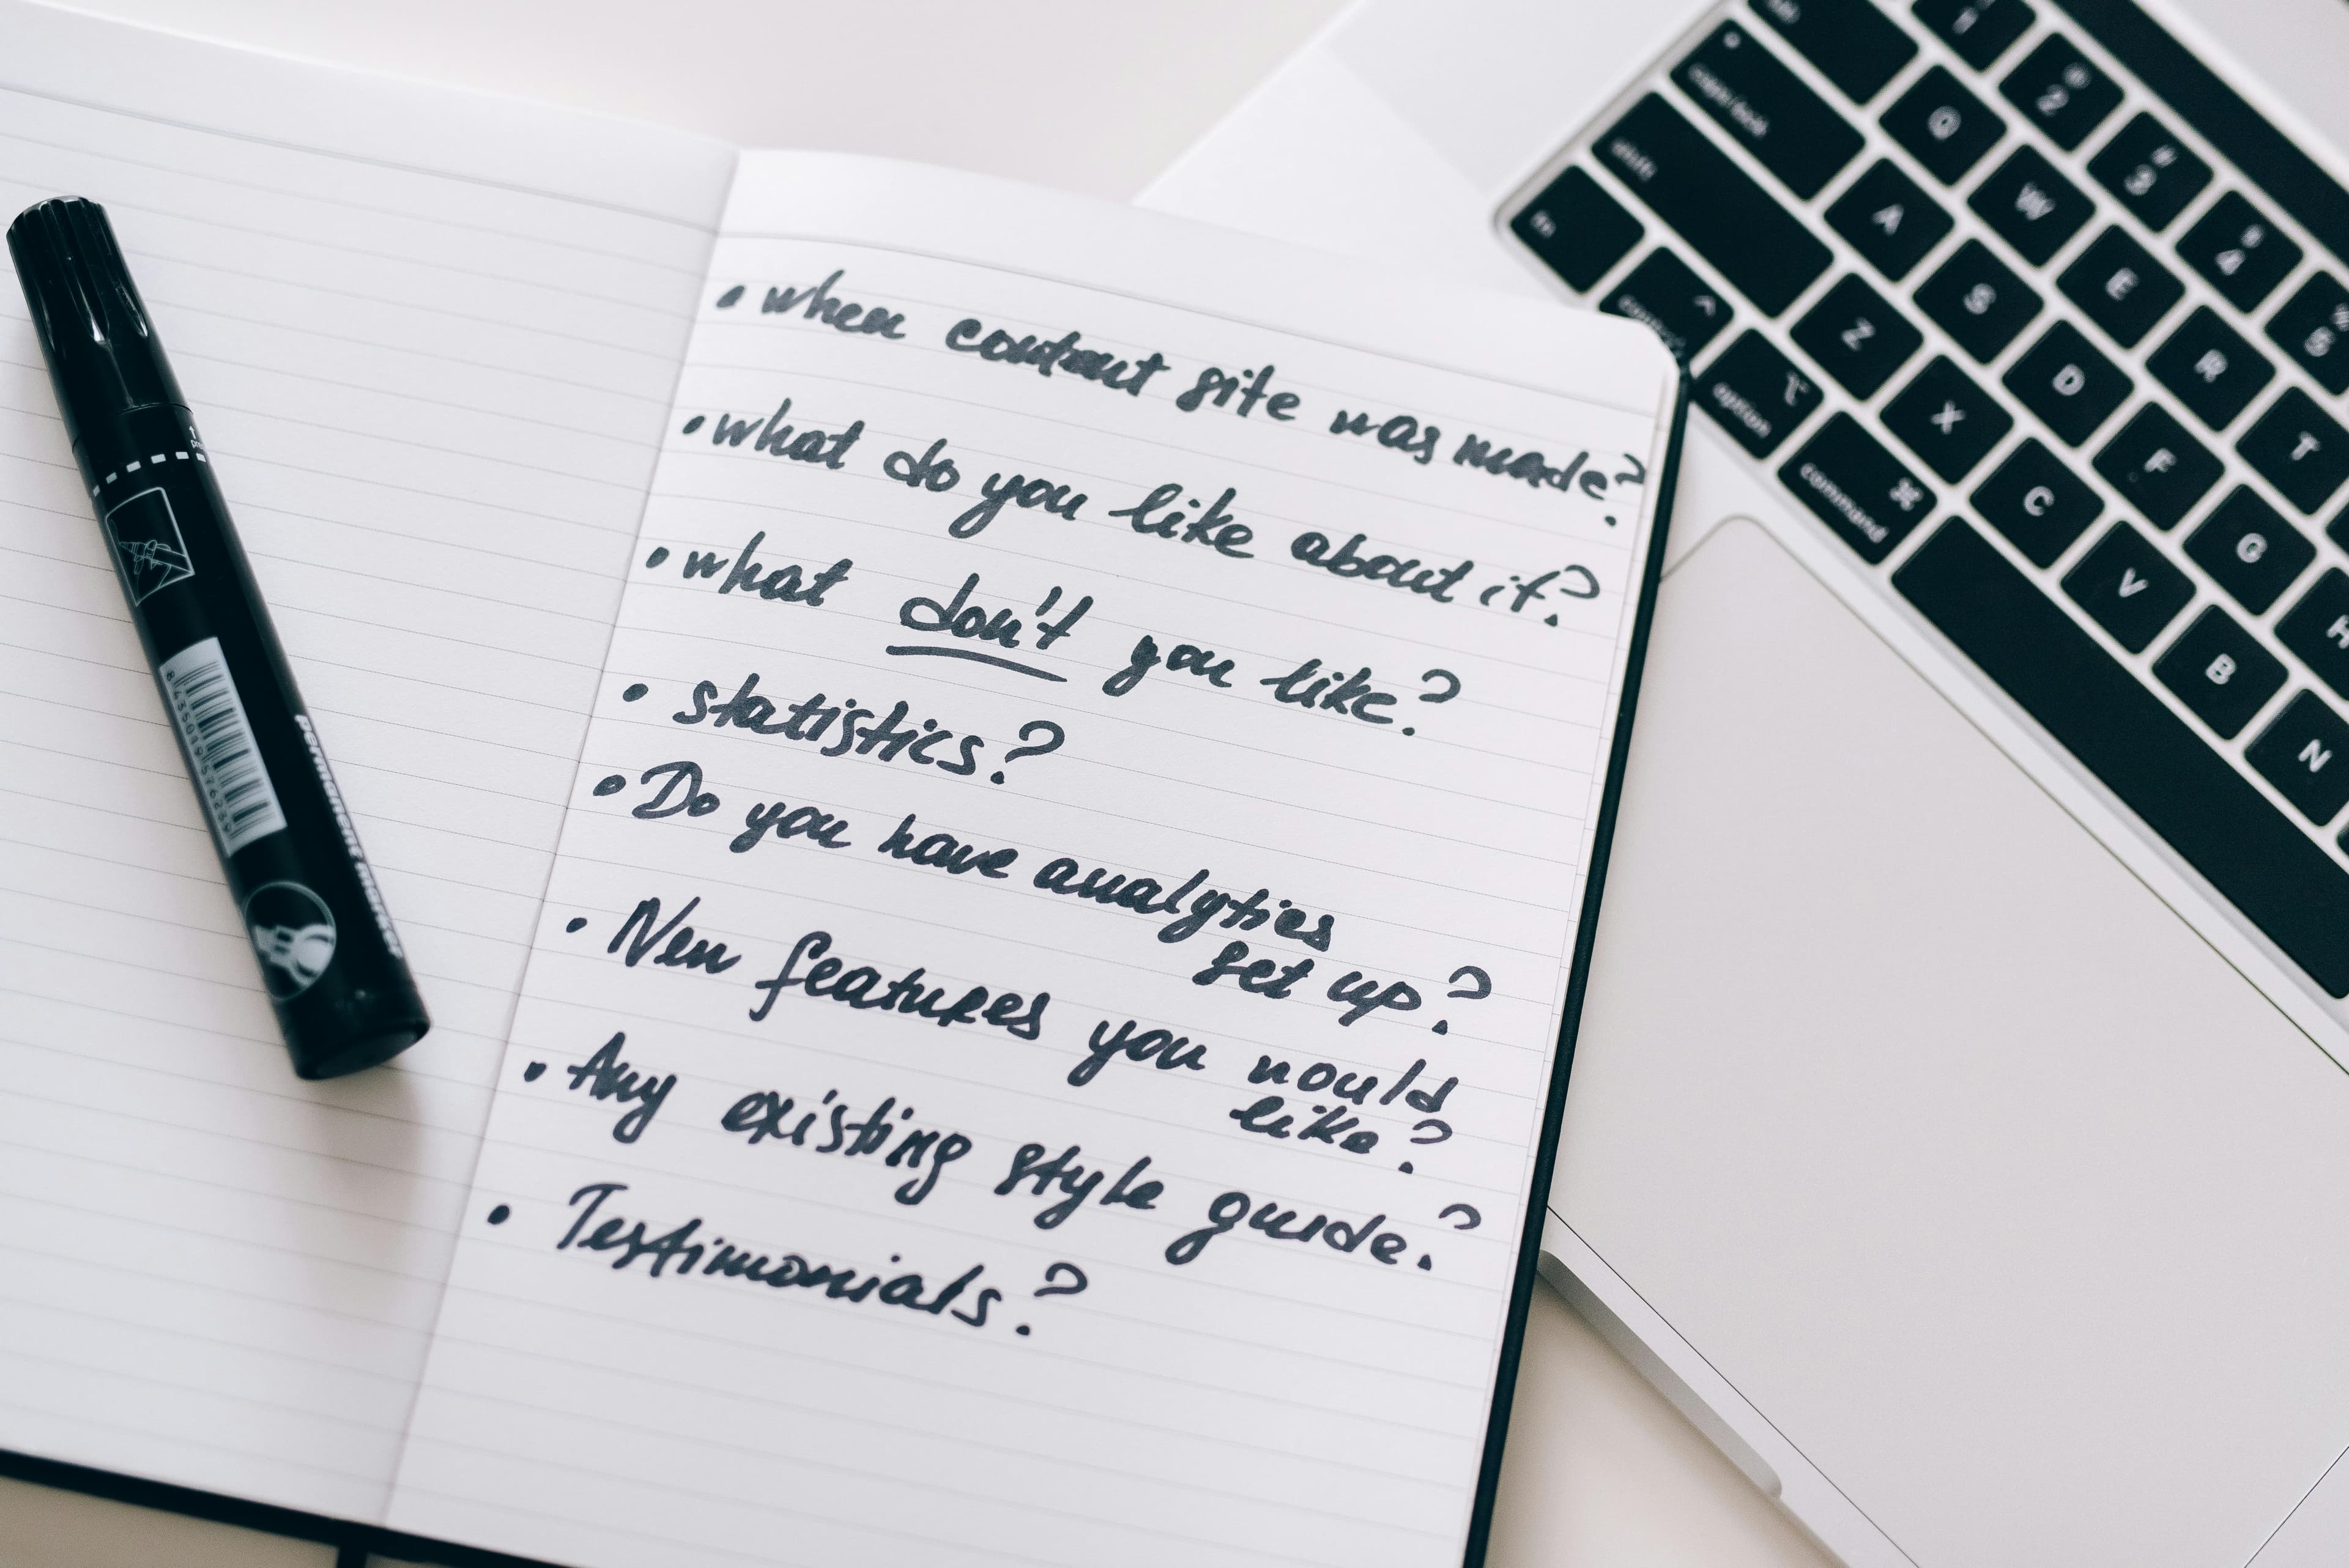 • when content site was made?
• what do you like about it?
• what don't you like?
• statistics?
• Do you have analytics
set up?
• New features you would
like?
• Any existing style guide?
• Testimonials?
permanent marker
esc
1
@ 2
# 3
$ 4
% 5
Q W E R T
caps lock
A S D F G
shift
Z X C V B N
fn
control
option
command